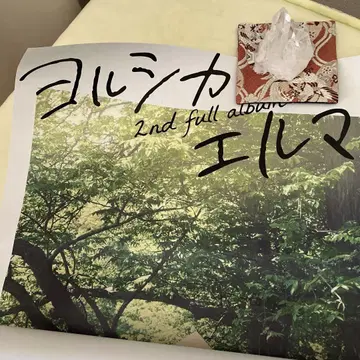 ヨルシカ
2nd full album
エルマ